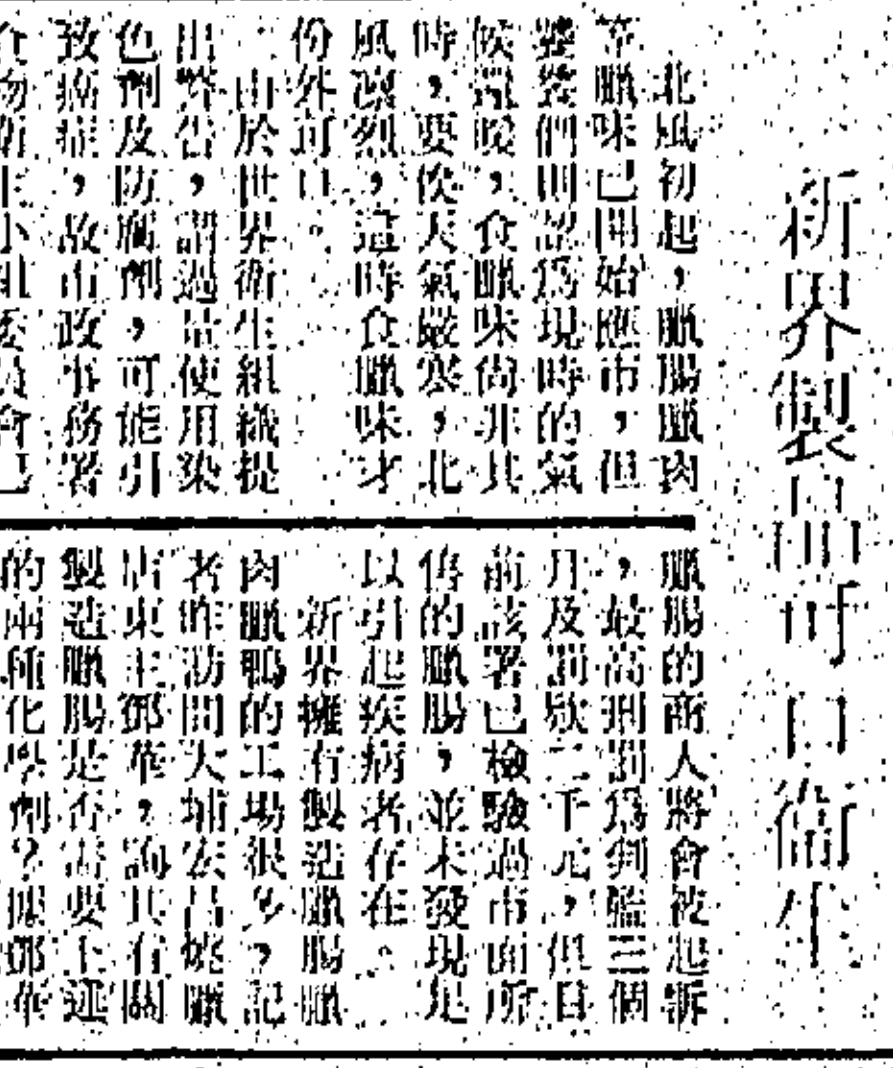 新界製品可口衛生
北風初起，臘腸臘肉
等臘味已開始應市，但
饕餮們則認爲現時的氣
候溫暖，食臘味尙非其
時，要俟天氣嚴寒，北
風凛烈，這時食臘味才
份外可口。
由於世界衛生組織提
出警吿，謂過量使用染
色劑及防腐劑，可能引
致癌症，故市政事務署
食物衛生小組委員會已
臘腸的商人將會被起訴
，最高刑罰爲判監三個
月及罰欵二千元，但目
前該署已檢驗過市面所
售的臘腸，並未發現足
以引起疾病者存在。
新界擁有製造臘腸臘
肉臘鴨的工場很多，記
者昨訪問大埔宏昌燒臘
店東主鄧華，詢其有關
製造臘腸是否需要上述
的兩種化學劑？據鄧華